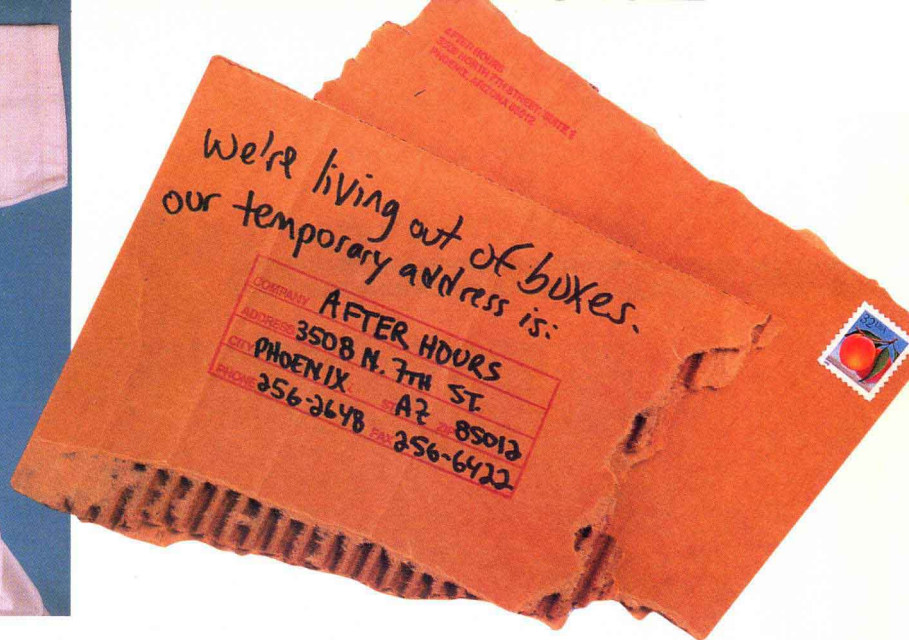 AFTER HOURS
3508 NORTH 7TH STREET, SUITE 5
PHOENIX, ARIZONA 85012
We're living out of boxes.
our temporary address is:
COMPANY AFTER HOURS
ADDRESS 3508 N. 7TH ST.
CITY PHOENIX ST AZ ZIP 85012
PHONE 256-2648 FAX 256-6422
32 USA